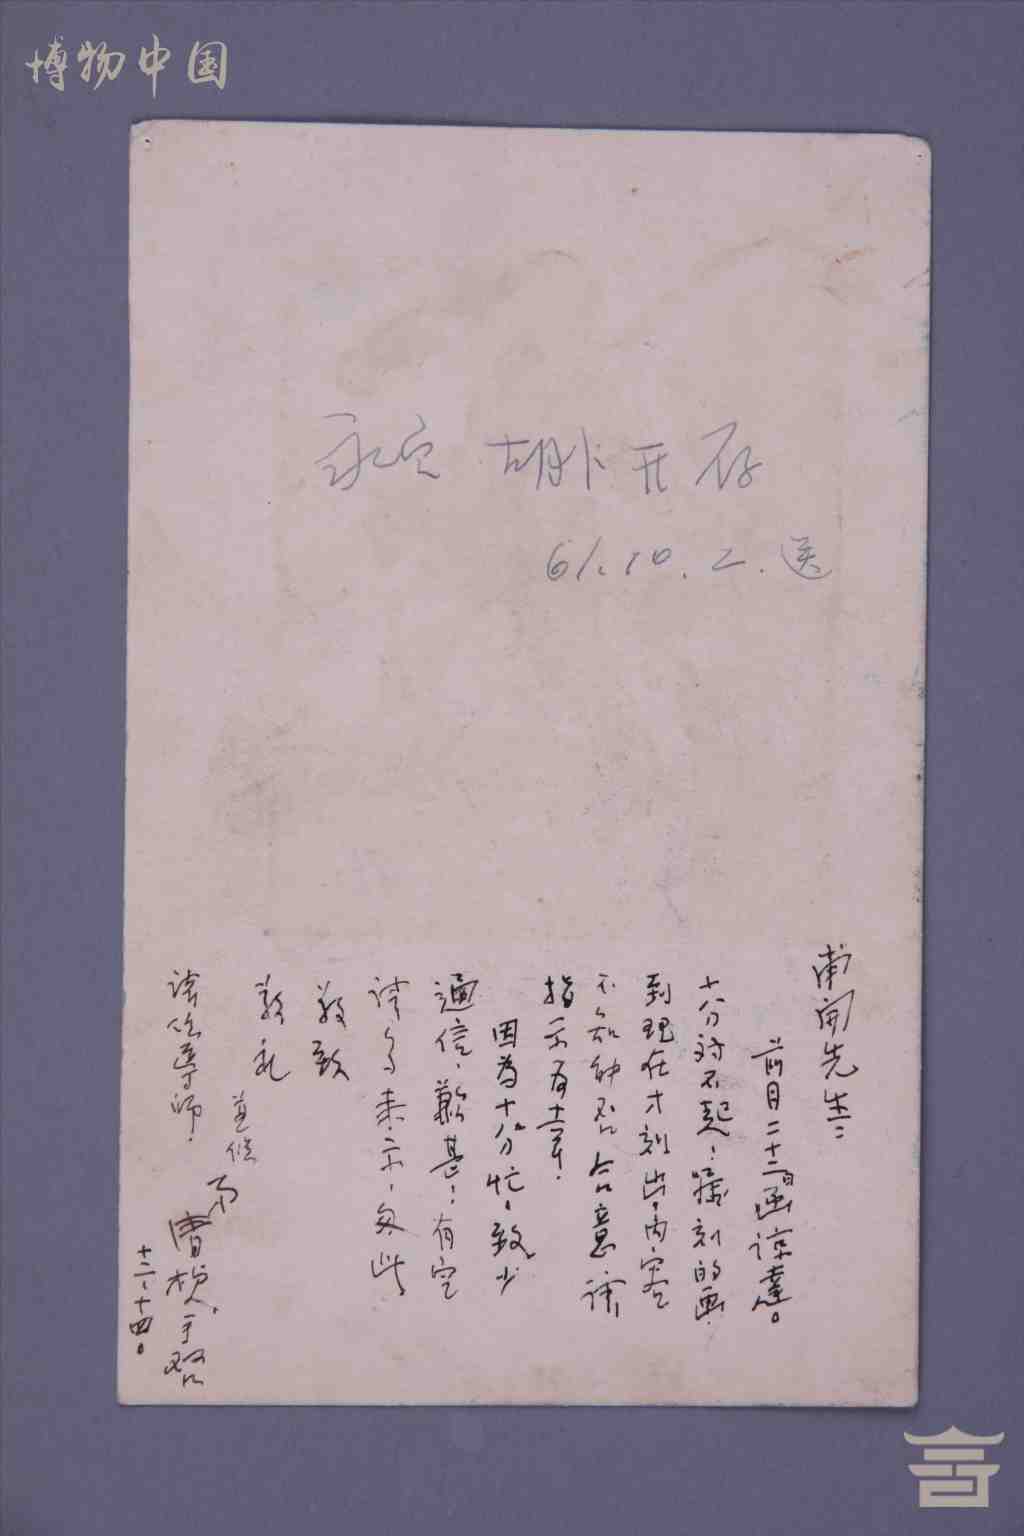 博物中国
永定 胡 开 存
61.10.2.送
南開先生:
前月二十二日函諒達。
十分对不起!囑刻的画
到現在才刻出,内容
不知能否合意,请
指示为幸.
因為十分忙,致少
通信,歉甚!有空
请多来示,匆此
敬致
敬礼
並候
诸位導師.
曹 手啓
十二、十四。